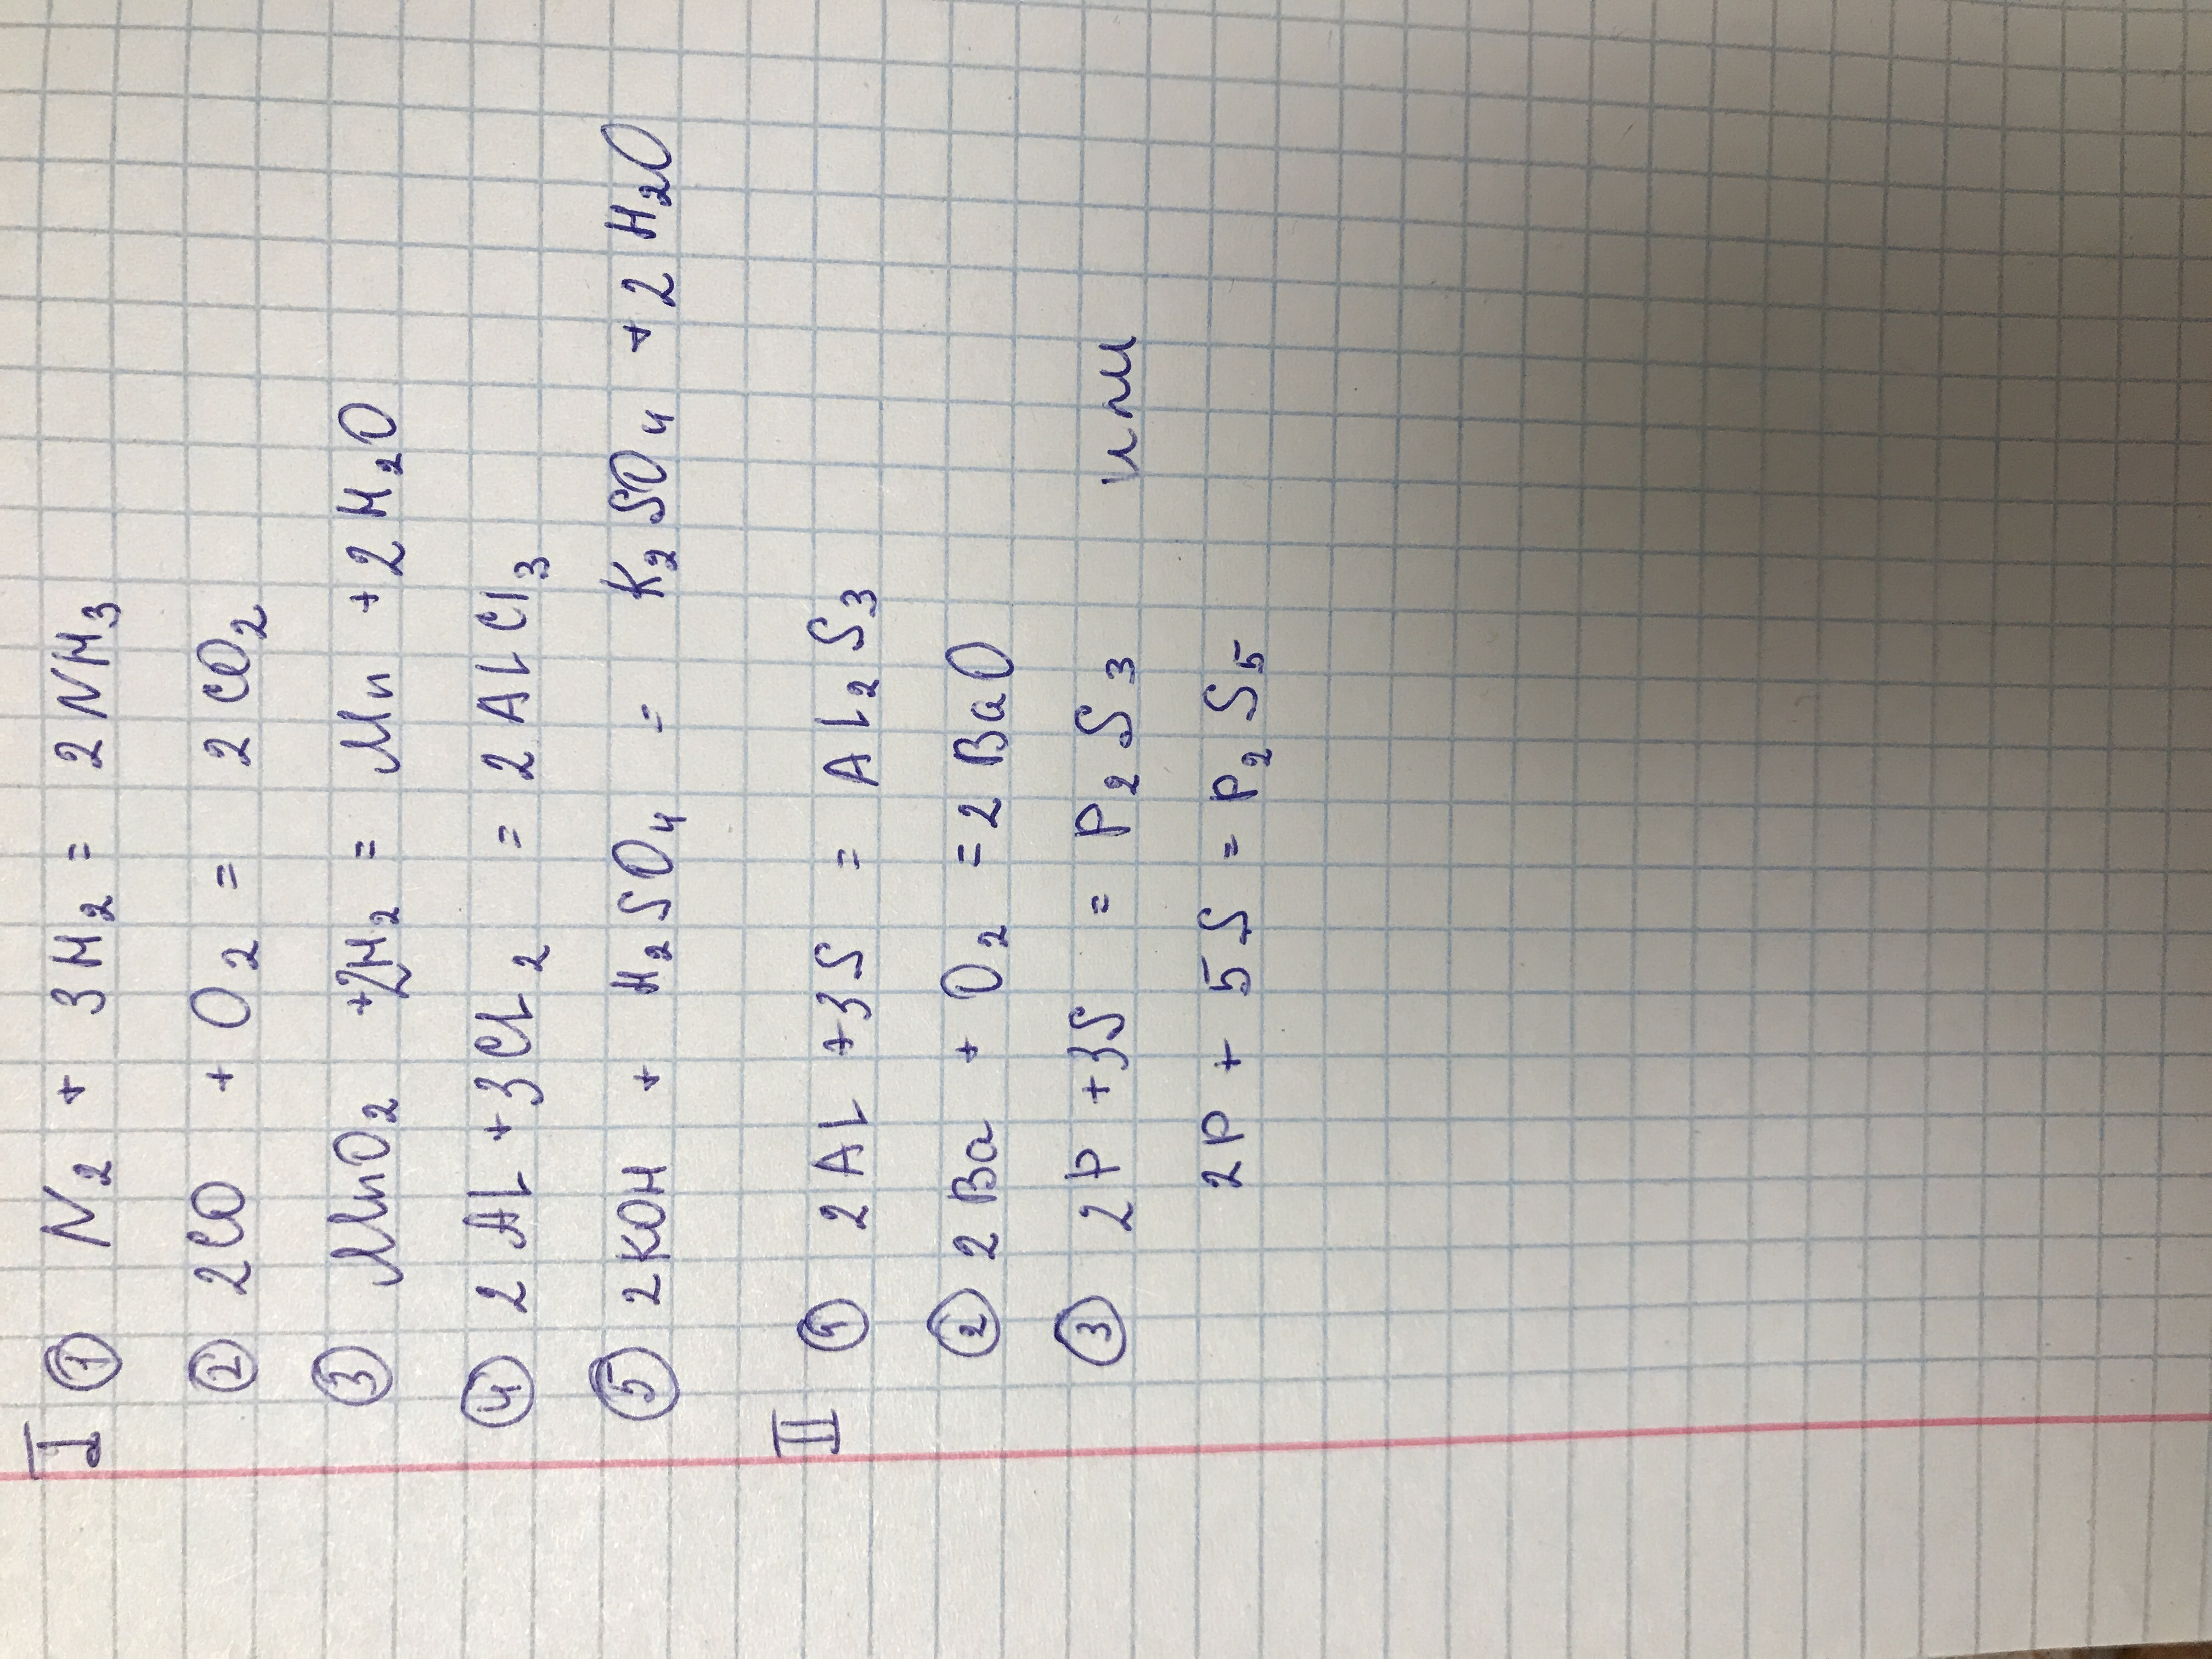 I ① N₂ + 3H₂ = 2NH₃
② 2CO + O₂ = 2CO₂
③ MnO₂ +2H₂ = Mn +2H₂O
④ 2Al +3Cl₂ = 2AlCl₃
⑤ 2KOH + H₂SO₄ = K₂SO₄ + 2H₂O
II ① 2Al +3S = Al₂S₃
② 2Ba + O₂ = 2BaO
③ 2P +3S = P₂S₃ или
2P + 5S = P₂S₅